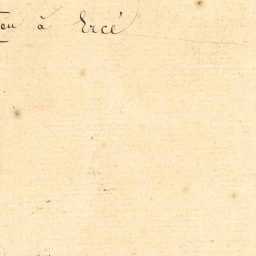 eu à Ercé